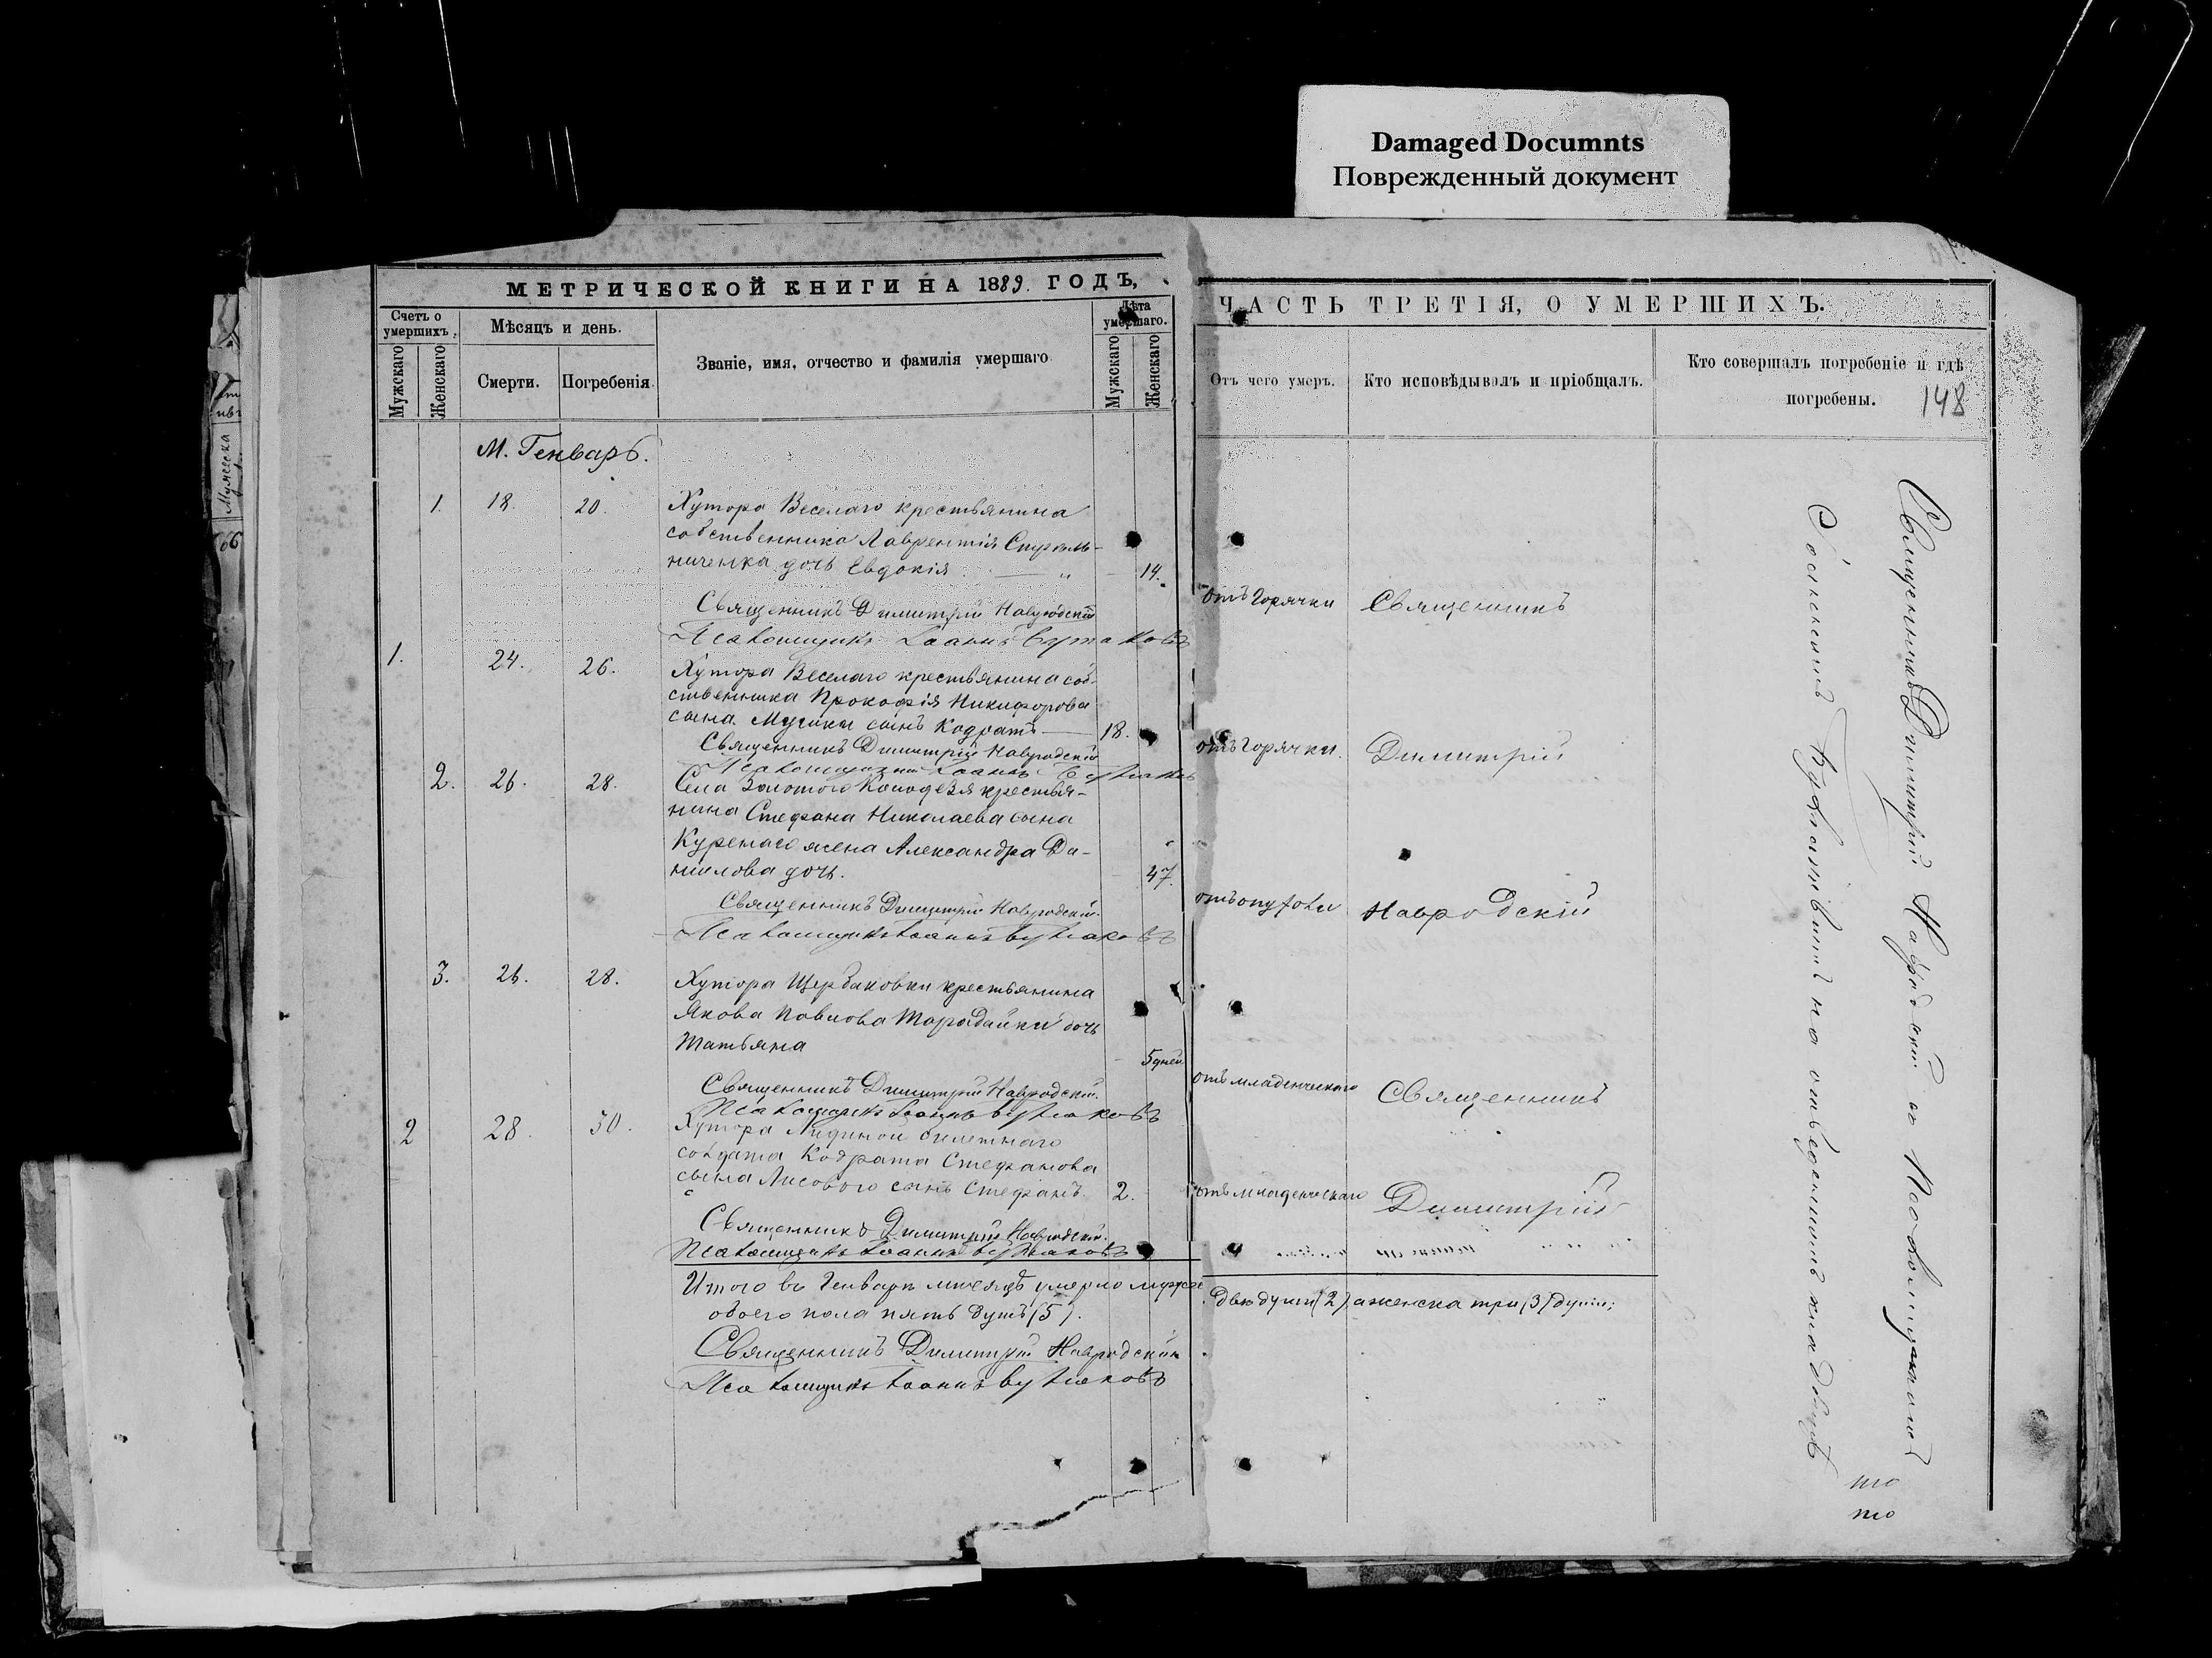 Damaged Documnts
Поврежденный документ
МЕТРИЧЕСКОЙ КНИГИ НА 1889. ГОДЪ,
Счетъ о умершихъ.
Мужскаго
Женскаго
Мѣсяцъ и день.
Смерти.
Погребенія.
Званіе, имя, отчество и фамилія умершаго.
Лѣта умершаго.
Мужскаго
Женскаго
М. Генварь.
1. 18. 20. Хутора Веселаго крестьянина
собственника Лаврентія
ниченка дочь Евдокія 14.
Священникъ Димитрій Навродскій
Псаломщикъ Іоаннъ
1. 24. 26. Хутора Веселаго крестьянина соб-
ственника Прокофія Никифорова
сына сынъ Кодратъ 18.
Священникъ Димитрій Навродскій
Псаломщикъ Іоаннъ
2. 26. 28. Села Золотого Колодезя крестья-
нина Стефана Николаева сына
Куренаго жена Александра Да-
ниилова дочь. 47.
Священникъ Димитрій Навродскій.
Псаломщикъ Іоаннъ
3. 26. 28. Хутора Щербаковки крестьянина
Якова Павлова Тарадайки дочь
Татьяна 5 дней
Священникъ Димитрій Навродскій.
Псаломщикъ Іоаннъ
2 28. 30. Хутора билетнаго
солдата Кодрата Стефанова
сына Лисового сынъ Стефанъ. 2.
Священникъ Димитрій Навродскій.
Псаломщикъ Іоаннъ
Итого въ Генварѣ мѣсяцѣ умерло мужск
обоего пола пять душъ (5).
Священникъ Димитрій Навродскій
Псаломщикъ Іоаннъ
ЧАСТЬ ТРЕТІЯ, О УМЕРШИХЪ.
Отъ чего умеръ.
Кто исповѣдывалъ и пріобщалъ.
Кто совершалъ погребеніе и гдѣ
погребены.
148
отъ горячки Священникъ
отъ горячки. Димитрій
Навродскій
отъ младенческаго Священникъ
отъ младенческаго Димитрій
двѣ души (2), а женска три (3) души;
Священникъ Димитрій Навродскій съ Псаломщикомъ
Іоанномъ на отведенномъ кладбищѣ